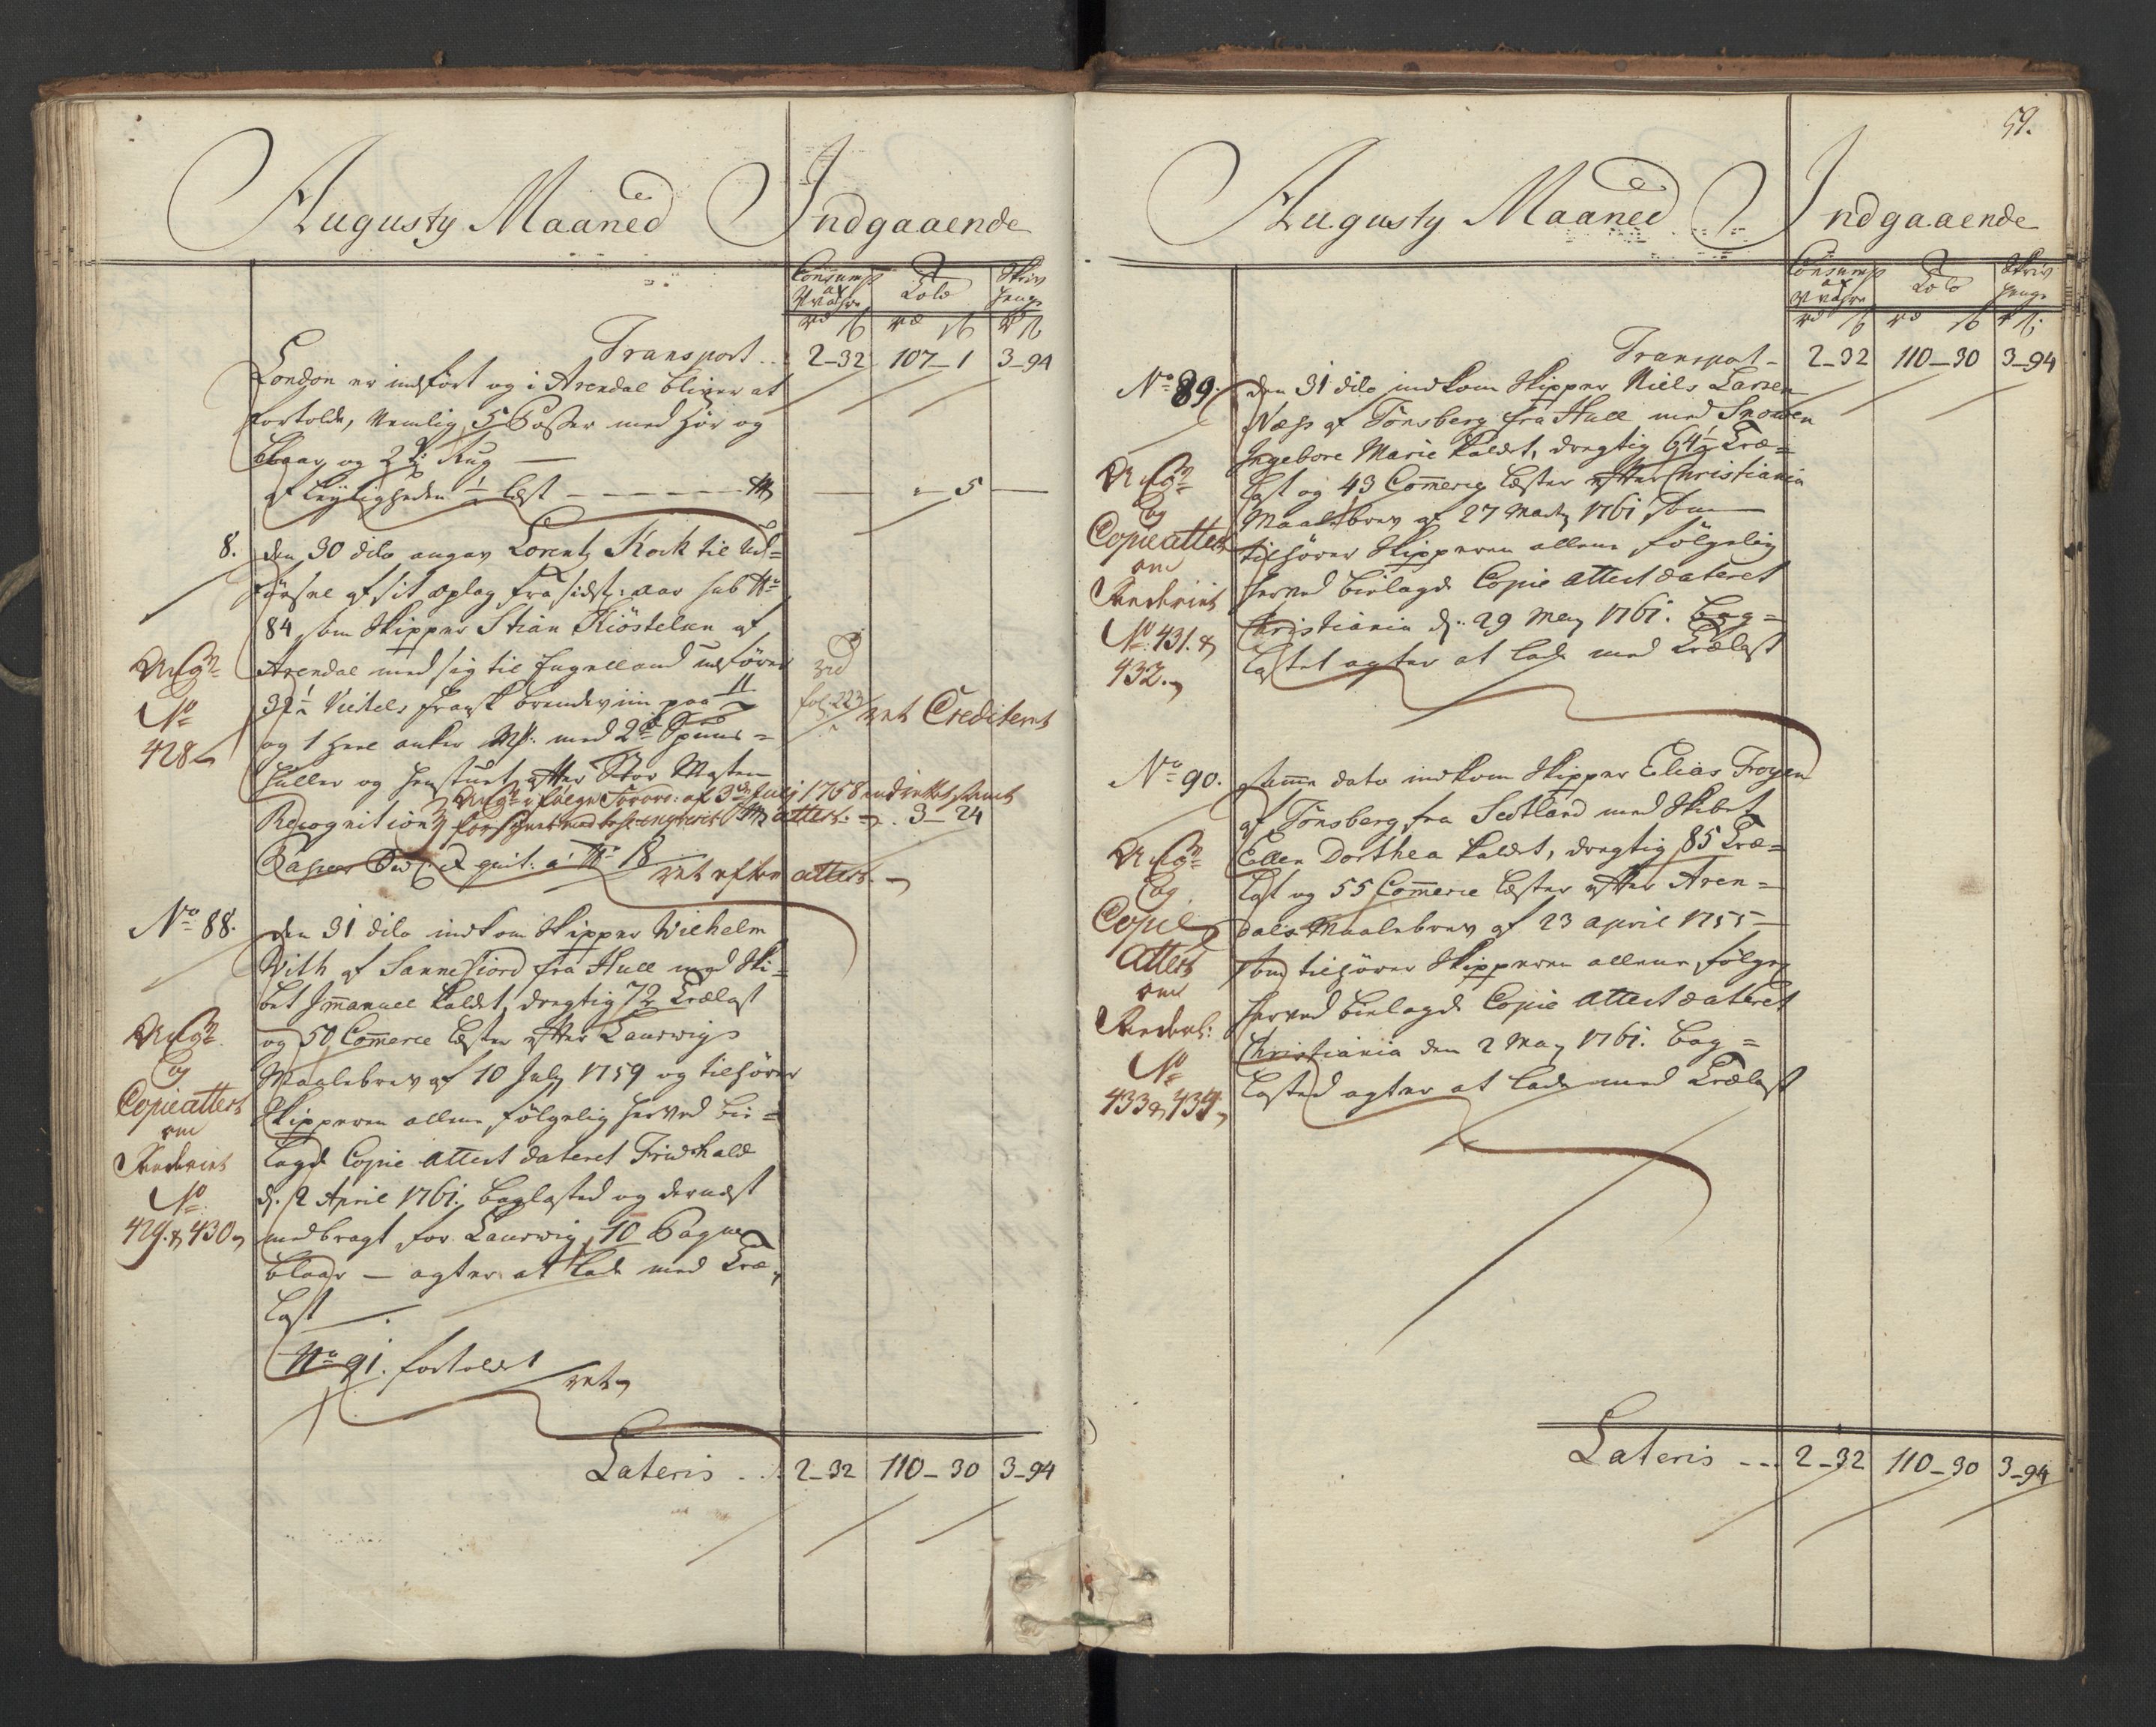 Augusty Maaned Indgaaende
Consumpt
af
Told
Skriv
penge
rd ß rd ß r ß
Transport .. 2_32 107_1 3_94
London er indført og i Arendal bliver at
fortolde, Nemlig 5 Paßer med Hør og
blaar og 2 Rug —
af leyligheden ½ læst - - - - - - - 5 —
8. den 30 dito angav Lorentz Kock til Ud=
førsel af sit oplag fra sidst: aar sub No
84 som Skipper Stian Kiöstelsen af
Arendal med sig til Engelland udfører
vid
fol: 223
ret Crediteret
og 1 Heel anker med 2de
huller og Hensturt efter Stor Masten
No
428
Recognition attest: 3_24
No 18
ret efter attest
No 88. den 31 dito indkom Skipper Wilhelm
With af Sannefiord fra Hull med Ski=
bet Immanuel kaldet, drægtig 72 Trælast
og 50 Commerce læster efter Laurwigs
Maalebrev af 10 July 1759 og tilhører
Skipperen allene følgelig herved bie=
lagde Copie Attest dateret Fridrhald
d. 2 April 1761, baglasted og dernæst
medbragt for Laurwig 10 Pagner
blaar — agter at lade med Træ,
last — .
og
Copie attest
om
Rederiet
No
429. & 430
No 91. fortoldet
ret
Lateris ... 2_32 110_30 3_94
59.
Augusty Maaned Indgaaende
Consumpt
af
Told
Skriv
penge
rd ß rd ß r ß
Transport - 2_32 110_30 3_94
No 89. den 31 dito indkom Skipper Niels Larsen
Næss af Tönsberg fra Hull med Snowen
Ingebore Marie kaldet, drægtig 64½ Træ=
last og 43 Commerce læster efter Christiania
Maalebrev af 27 Marty 1761 som
tilhører Skipperen allene følgelig
herved bielagde Copie Attest dateret
Christiania d. 29 May 1761. Bag=
lastet agter at lade med Trælast
og
Copie attest
om
Rederiet
No 431. &
432.
No 90. Samme dato indkom Skipper Elias Trogen
af Tönsberg fra Scotland med Skibet
Ellen Dorthea kaldet, drægtig 85 Træ=
last og 55 Commerce læster efter Aren=
dals Maalebrev af 23 April 1755
som tilhører Skipperen allene, følgeg
herved bielagde Copie Attest dateret
Christiania den 2 May 1761. bag=
lasted agter at lade med Trælast
og
Copie
Attest
om
Rederi:
No
433 & 434
Lateris ... 2_32 110_30 3_94